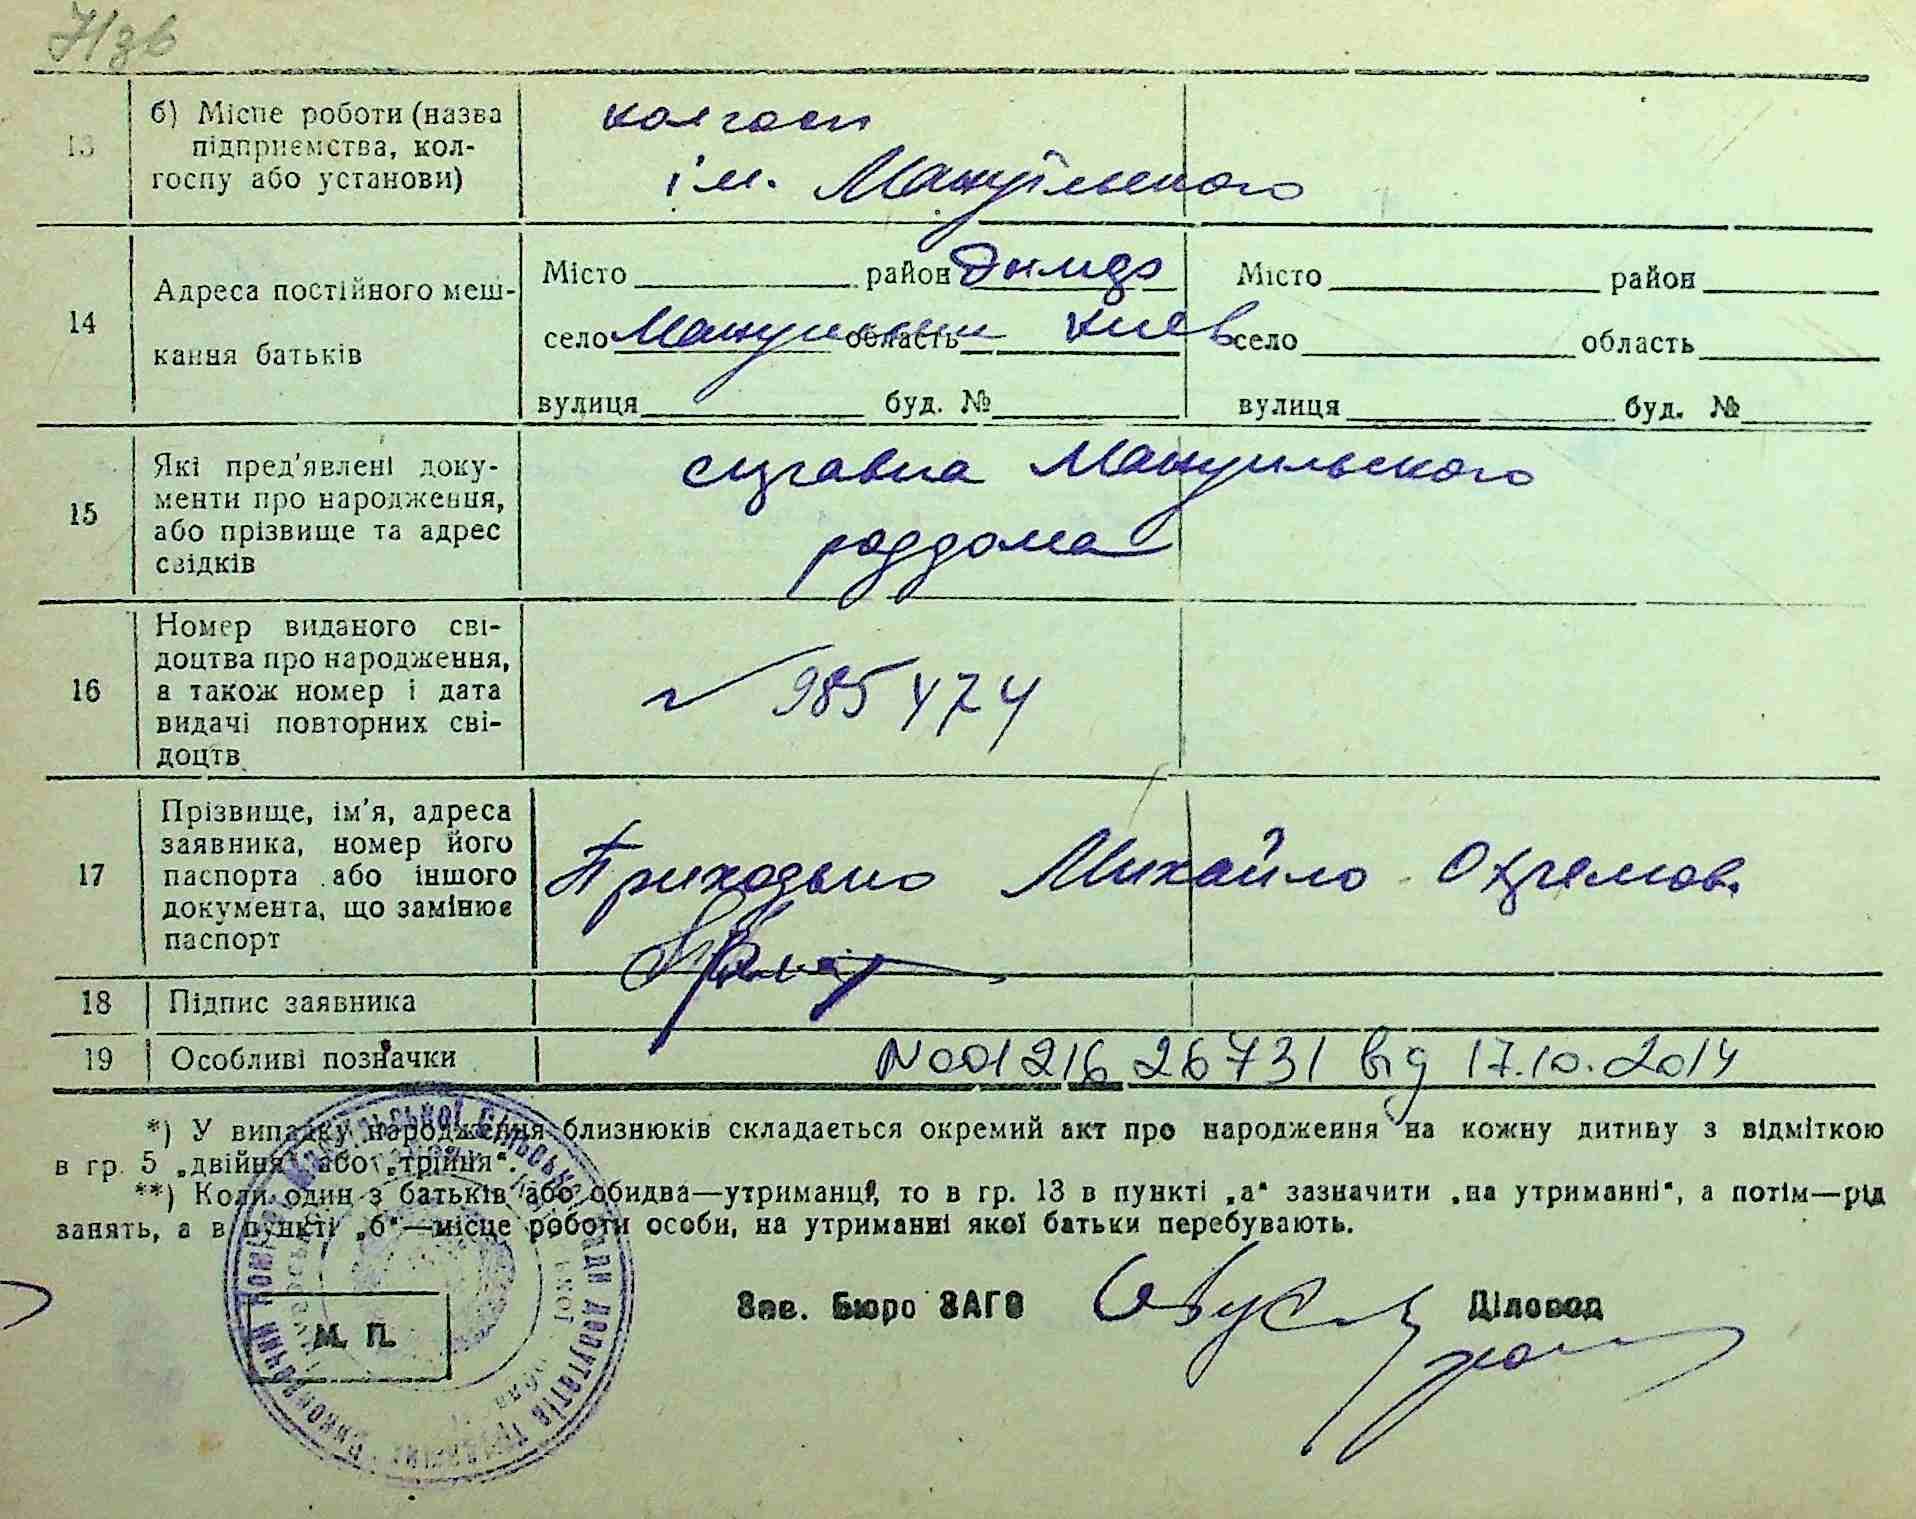 13 б) Місце роботи (назва
підприємства, кол-
госпу або установи)
колгосп
ім. Мануїльського
14 Адреса постійного меш-
кання батьків
Місто район Димер
село Мануильськ область Киев
вулиця буд. №
Місто район
село область
вулиця буд. №
15 Які пред'явлені доку-
менти про народження,
або прізвище та адрес
свідків
справка Мануильского
роддома
16 Номер виданого сві-
доцтва про народження,
а також номер і дата
видачі повторних сві-
доцтв
№ 985474
17 Прізвище, ім'я, адреса
заявника, номер його
паспорта або іншого
документа, що замінює
паспорт
Приходько Михайло Охремов.
18 Підпис заявника
19 Особливі позначки
N00121626731 від 17.10.2014
*) У випадку народження близнюків складається окремий акт про народження на кожну дитину з відміткою
в гр. 5 „двійня“ або „трійня“.
**) Коли один з батьків або обидва—утриманці, то в гр. 13 в пункті „а“ зазначити „на утриманні“, а потім—рід
занять, а в пункті „б“—місце роботи особи, на утриманні якої батьки перебувають.
Зав. Бюро ЗАГС Діловод
М. П.